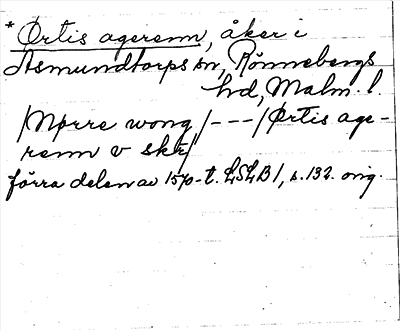 * Ørtis agerenn, åker i
Asmundtorps sn, Rönnebergs
hd, Malm. l.
/Nørre wong/---/Ørtis age-
renn v skr/
förra delen av 1570-t. LSLB 1, s. 132. orig.